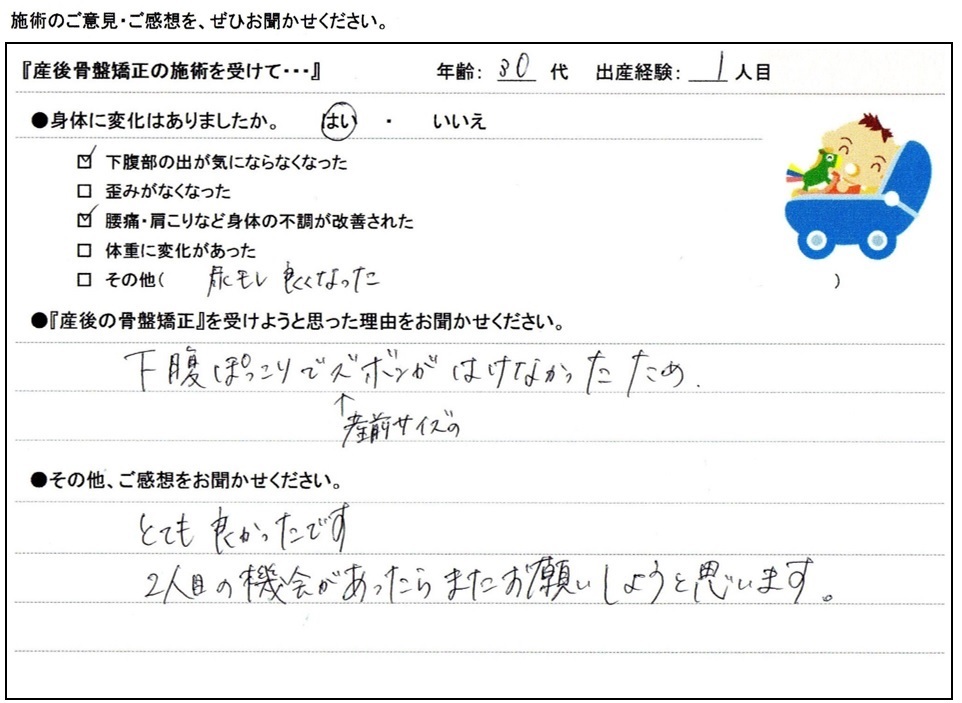 施術のご意見・ご感想を、ぜひお聞かせください。
『産後骨盤矯正の施術を受けて・・・』 年齢： 30 代 出産経験： 1 人目
●身体に変化はありましたか。 はい ・ いいえ
☑ 下腹部の出が気にならなくなった
□ 歪みがなくなった
☑ 腰痛・肩こりなど身体の不調が改善された
□ 体重に変化があった
□ その他（ 尿モレ 良くなった ）
●『産後の骨盤矯正』を受けようと思った理由をお聞かせください。
下腹ぽっこりでズボンがはけなかったため.
↑産前サイズの
●その他、ご感想をお聞かせください。
とても良かったです
2人目の機会があったらまたお願いしようと思います。